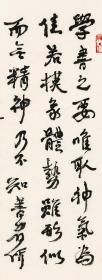 學書之要唯取神氣為
佳若模象體勢雖形似
而無精神乃不知書者所